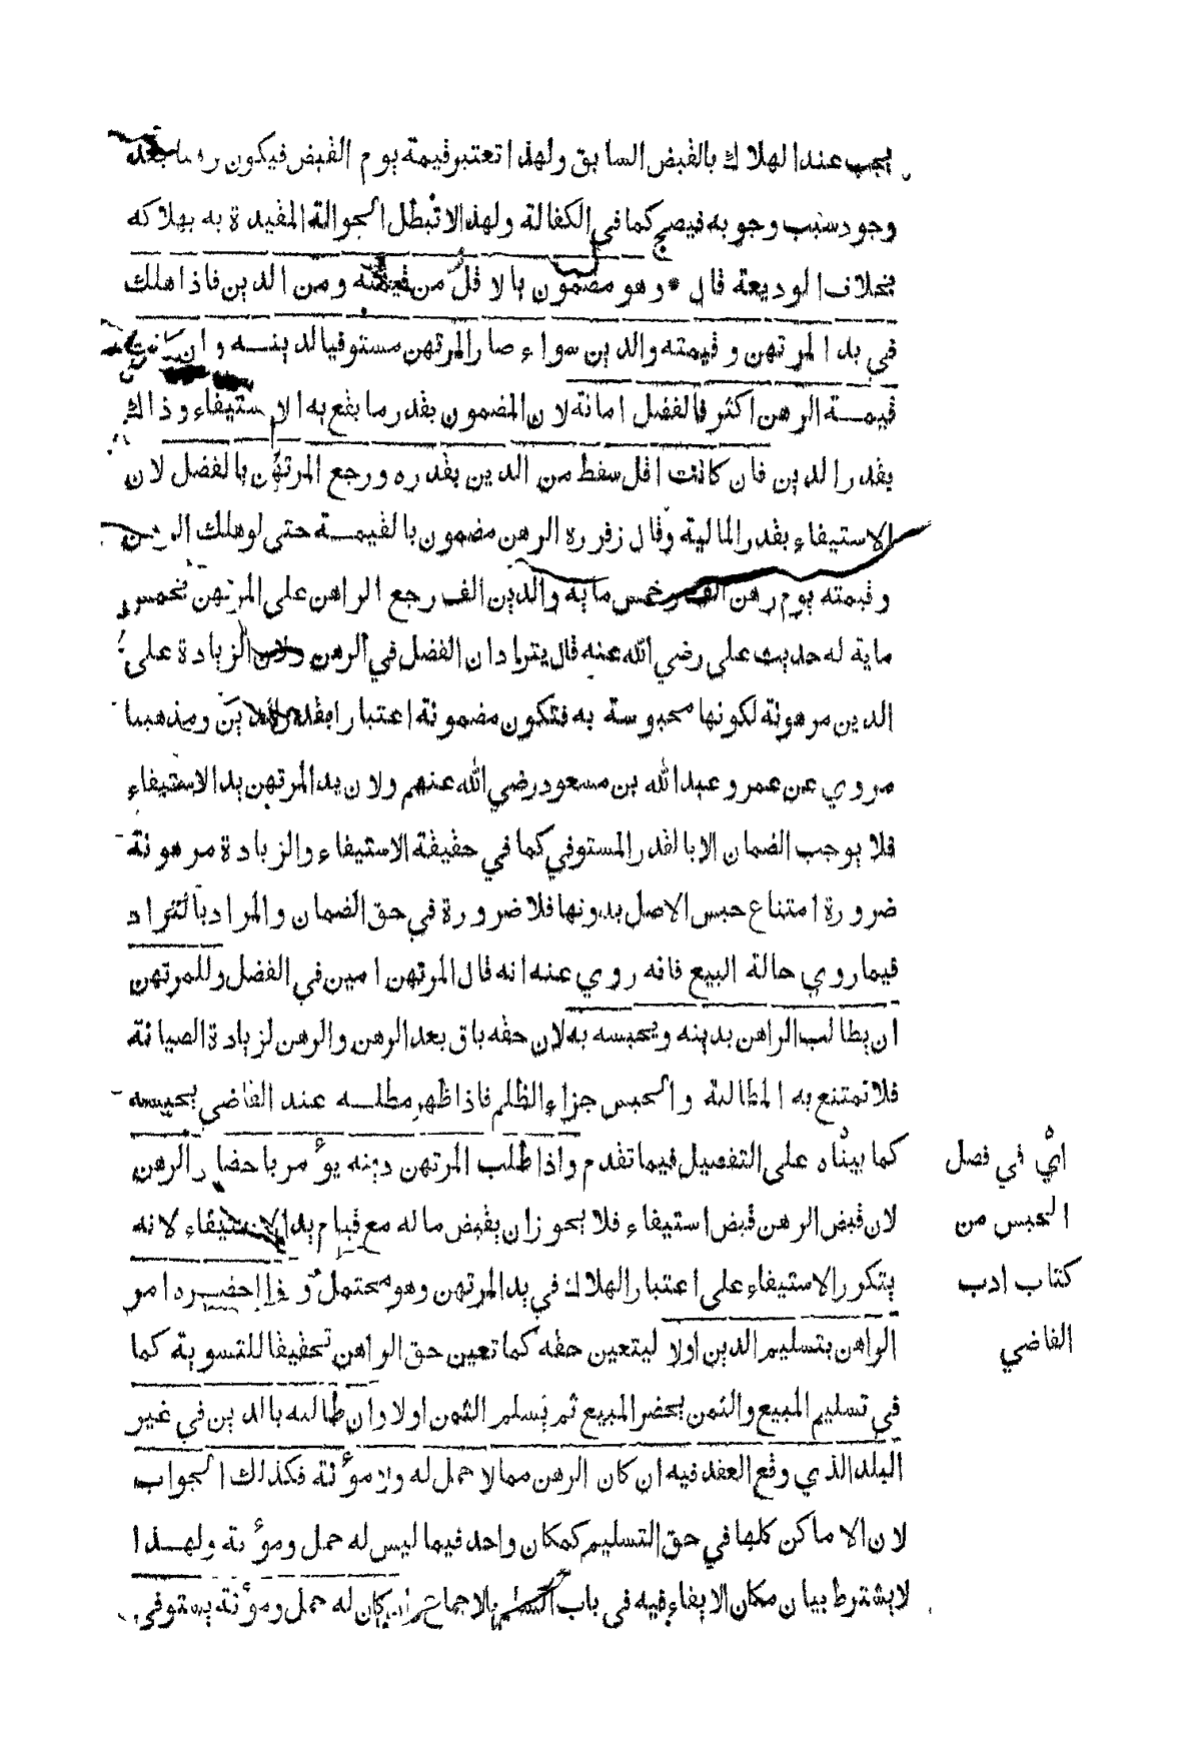 يجب عند الهلاك بالقبض السابق ولهذا تعتبر قيمته يوم القبض فيكون رهنا بعد
وجود سبب وجوبه فيصح كما في الكفالة ولهذا لا تبطل الحوالة المقيدة به بهلاكه
بخلاف الوديعة قال * وهو مضمون بالاقل من قيمته ومن الدين فاذا هلك
في يد المرتهن وقيمته والدين سواء صار المرتهن مستوفيا لدينه وان كانت
قيمة الرهن اكثر فالفضل امانة لان المضمون بقدر ما يقع به الاستيفاء وذاك
بقدر الدين فان كانت اقل سقط من الدين بقدره ورجع المرتهن بالفضل لان
الاستيفاء بقدر المالية وقال زفر ره الرهن مضمون بالقيمة حتى لو هلك الرهن
وقيمته يوم رهن الف وخمس ماية والدين الف رجع الراهن على المرتهن بخمس
ماية له حديث على رضي الله عنه قال يترادان الفضل في الرهن ولان الزيادة على
الدين مرهونة لكونها محبوسة به فتكون مضمونة اعتبارا بقدر الدين ومذهبنا
مروي عن عمر وعبد الله بن مسعود رضي الله عنهم ولان يد المرتهن يد الاستيفاء
فلا يوجب الضمان الا بالقدر المستوفي كما في حقيقة الاستيفاء والزيادة مرهونة
ضرورة امتناع حبس الاصل بدونها فلا ضرورة في حق الضمان والمراد بالتراد
فيما روي حالة البيع فانه روي عنه انه قال المرتهن امين في الفضل وللمرتهن
ان يطالب الراهن بدينه ويحبسه به لان حقه باق بعد الرهن والرهن لزيادة الصيانة
فلا تمتنع به المطالبة والحبس جزاء الظلم فاذا ظهر مطله عند القاضي يحبسه
كما بيناه على التفصيل فيما تقدم واذا طلب المرتهن دينه يؤمر باحضار الرهن
لان قبض الرهن قبض استيفاء فلا يجوز ان يقبض ماله مع قيام يد الاستيفاء لانه
يتكرر الاستيفاء على اعتبار الهلاك في يد المرتهن وهو محتمل و اذا احضره امر
الراهن بتسليم الدين اولا ليتعين حقه كما تعين حق الراهن تحقيقا للتسوية كما
في تسليم المبيع والثمن يحضر المبيع ثم يسلم الثمن اولا وان طالبه بالدين في غير
البلد الذي وقع العقد فيه ان كان الرهن مما لا حمل له ولا مؤنة فكذلك الجواب
لان الاماكن كلها في حق التسليم كمكان واحد فيما ليس له حمل ومؤنة ولهذا
لا يشترط بيان مكان الايفاء فيه في باب السلم بالاجماع وان كان له حمل ومؤنة يستوفي
اي في فصل
الحبس من
كتاب ادب
القاضي